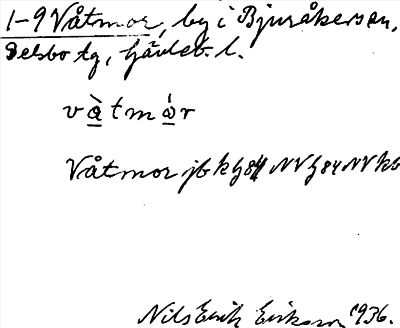 1-9 Våtmor, by i Bjuråkers sn,
Delsbo tg, Gävleb. l.
và̱tmó̱r
Våtmor jb kh 84 NV 984 NV kb
Nils Erik Eriksson 1936.